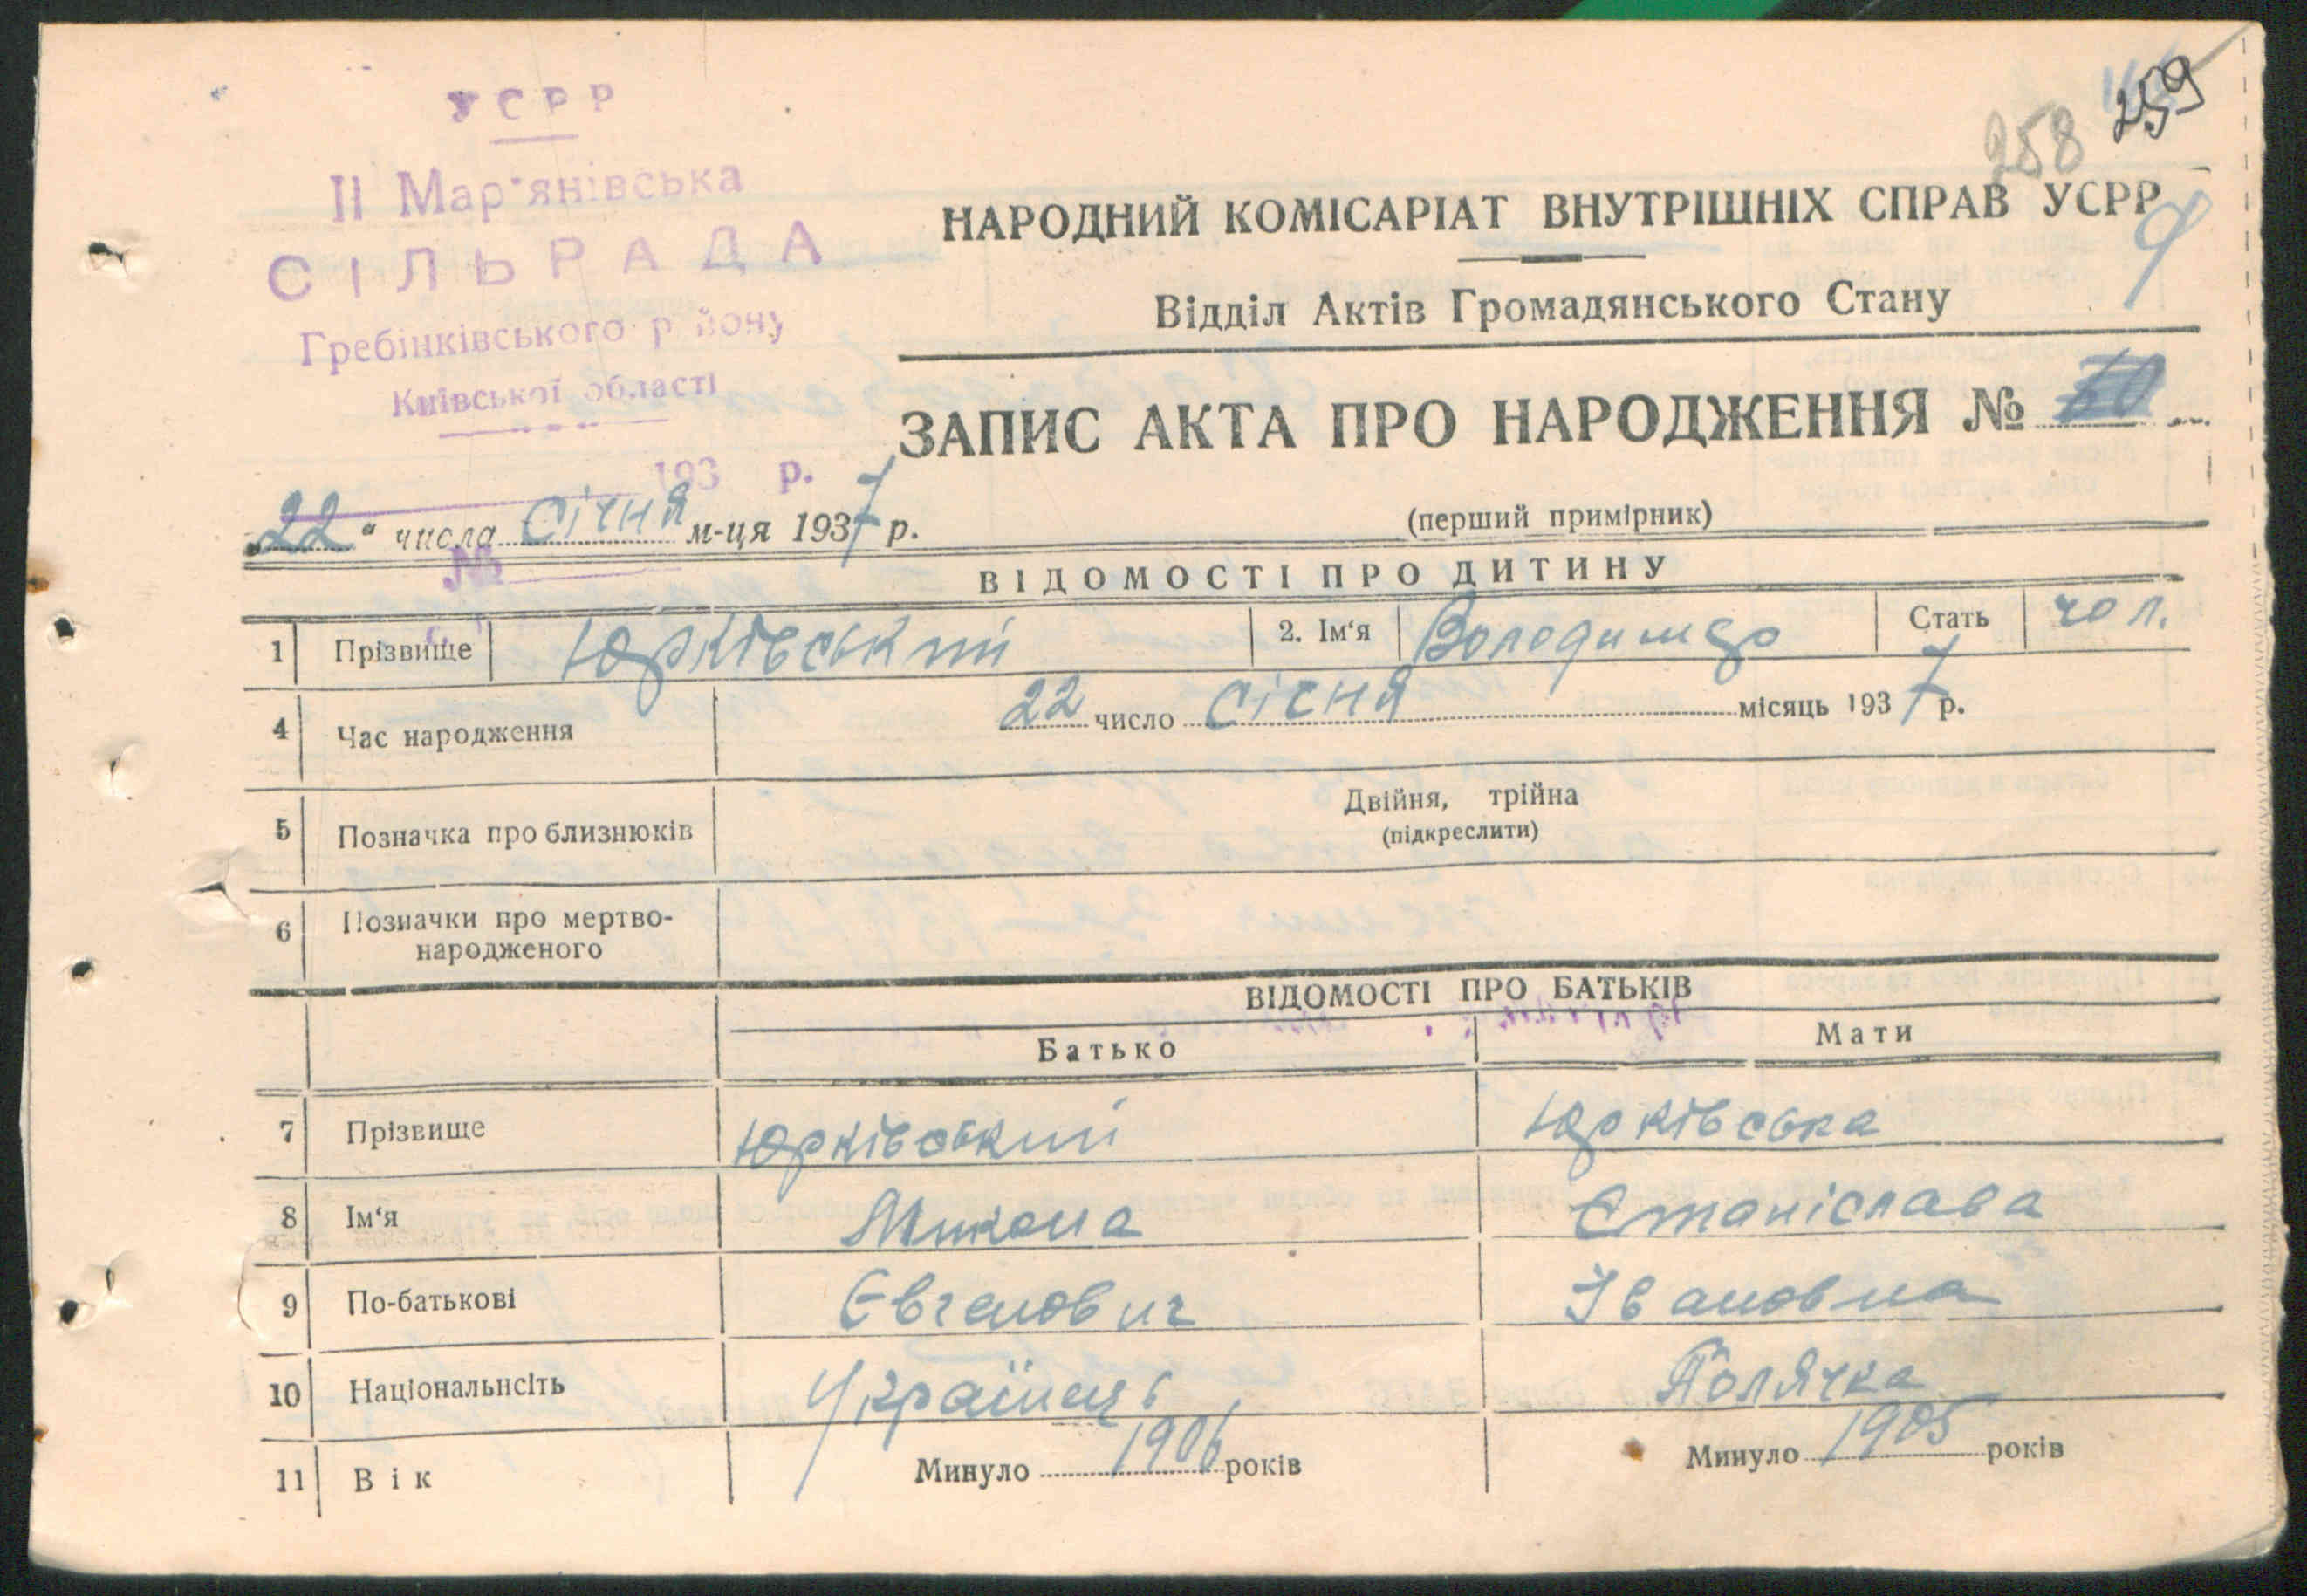 УСРР
II Мар'янівська
СІЛЬРАДА
Гребінківського р йону
Київської області
193 р.
№
258 259
НАРОДНИЙ КОМІСАРІАТ ВНУТРІШНІХ СПРАВ УСРР
9
Відділ Актів Громадянського Стану
ЗАПИС АКТА ПРО НАРОДЖЕННЯ №
„22“ числа Січня м-ця 1937 р.
(перший примірник)
ВІДОМОСТІ ПРО ДИТИНУ
1 Прізвище Юрківський 2. Ім‘я Володимер Стать чол.
4 Час народження 22 число Січня місяць 1937 р.
5 Позначка про близнюків Двійня, трійна
(підкреслити)
6 Позначки про мертво-
народженого
ВІДОМОСТІ ПРО БАТЬКІВ
Батько Мати
7 Прізвище Юрківський Юрківська
8 Ім‘я Микола Станіслава
9 По-батькові Євгенович Івановна
10 Національнсіть Українець Полячка
11 Вік Минуло 1906 років Минуло 1905 років